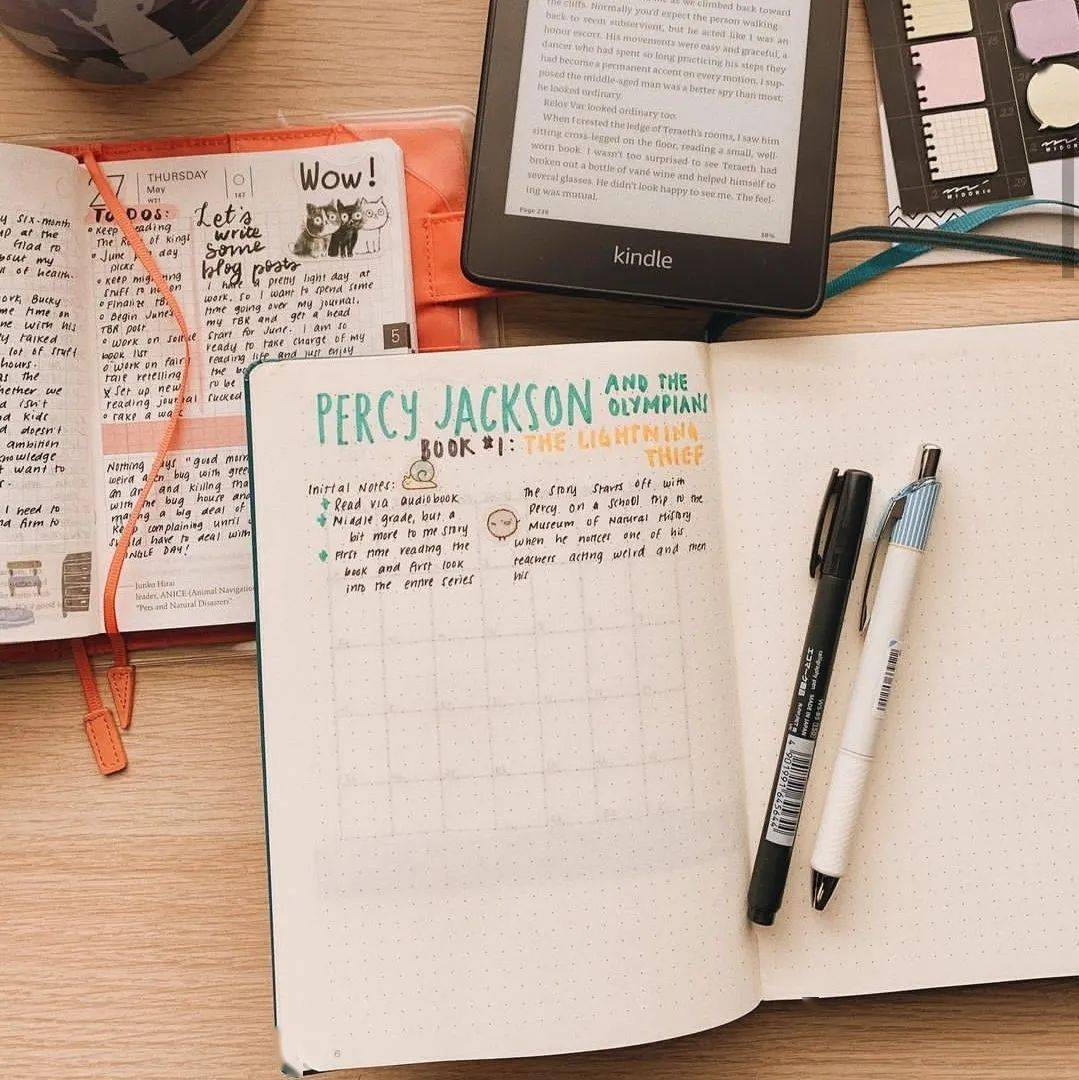 me as we climbed back toward
the cliffs. Normally you'd expect the person walking
back to seem subservient, but he acted like I was an
honor escort. His movements were easy and graceful, a
dancer who had spent so long practicing his steps they
had become a permanent accent on every motion. I sup-
posed the middle-aged man was a better spy than most:
he looked ordinary.
Relos Var looked ordinary too.
When I crested the ledge of Teraeth's rooms, I saw him
sitting cross-legged on the floor, reading a small, well-
worn book. I wasn't too surprised to see Teraeth had
broken out a bottle of vané wine and helped himself to
several glasses. He didn't look happy to see me. The feel-
ing was mutual.
Page 238
38%
kindle
MIDORI
MIDORI
six-month
up at the
Glad to
about my
of health.
work, Bucky
time on
with his
talked
lot of stuff
hours.
as the
whether we
isn't
kids
doesn't
ambition
knowledge
want to
I need to
and firm to
27
THURSDAY
May
W21
147
Wow!
TO DOS:
Keep reading
The Ruin of Kings
June
day
picks
Keep
stuff to
Finalize TBR
Begin June
TBR post
Work on some
book list
Work on fairy
tale retelling
X Set up new
reading journal
Take a walk
Let's
write
some
blog posts
I have a pretty light day at
work, so I want to spend some
time going over my journal,
my TBR and get a head
start for June. I am so
ready to take charge of my
reading life and just enjoy
the
to be
sucked
5
Nothing says "good morn
weird a bug with green
an and killing tha
with the bug house and
making a big deal of
Keep complaining until
should have to deal with
SINGLE DAY!
Junko Hirai
leader, ANICE (Animal Navigation
"Pets and Natural Disasters"
PERCY JACKSON AND THE
OLYMPIANS
BOOK #1: THE LIGHTNING
THIEF
Initial Notes:
Read via audiobook
Middle grade, but a
bit more to me story
First time reading the
book and first look
into the entire series
The story starts off with
Percy. On a school trip to the
Museum of Natural History
when he notices one of his
teachers acting weird and then
his
6
calligraphy pen
MADE IN JAPAN
エコマーク商品
4901991645644